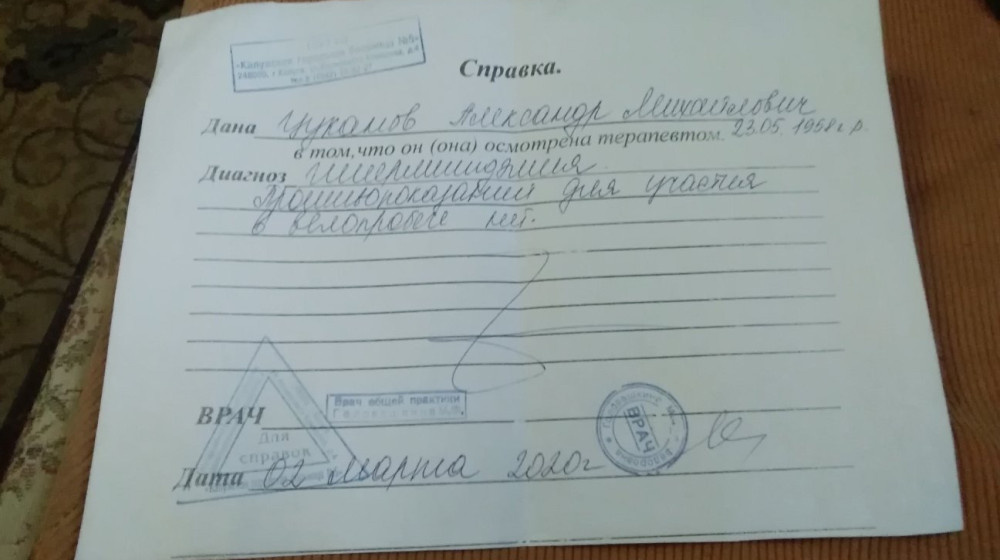 «Калужская городская больница №5»
Справка.
Дана Цуканов Александр Михайлович
в том, что он (она) осмотрена терапевтом. 23.05.1958 г.р.
Диагноз
Противопоказаний для участия
в велопробеге нет.
Врач общей практики
ВРАЧ
ВРАЧ
Для
справок
Дата 02 марта 2020г